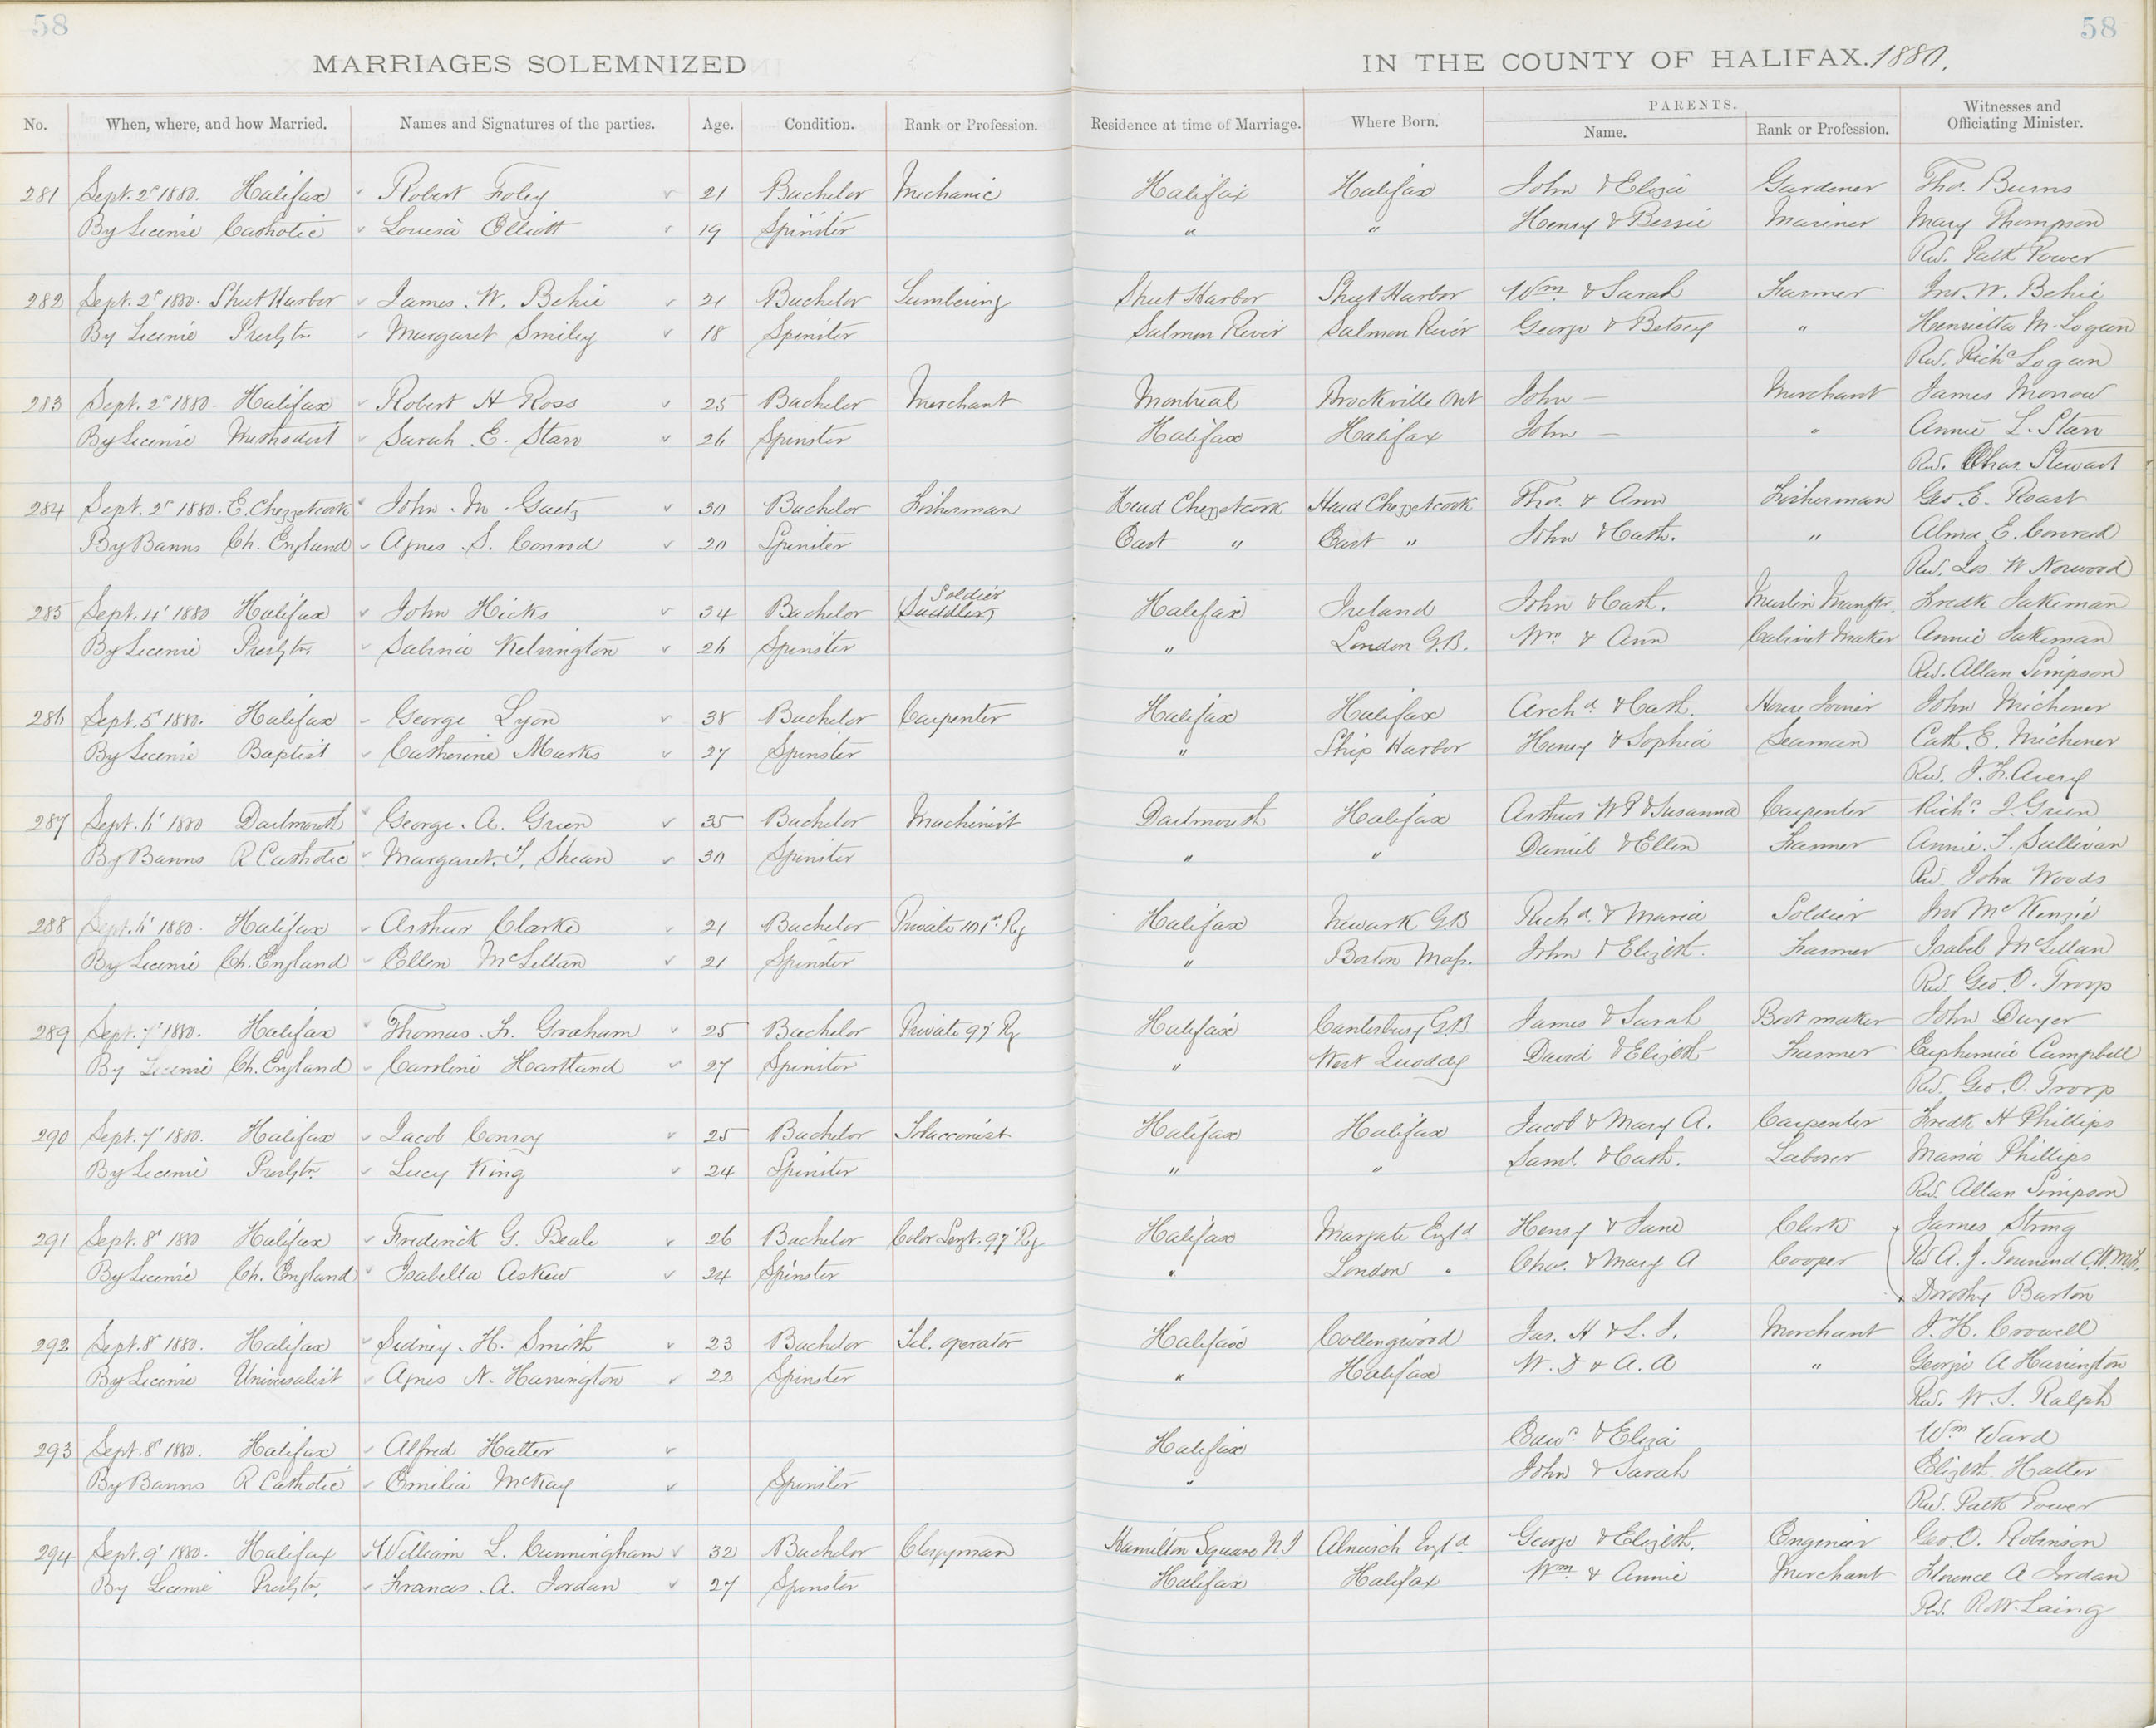 58 58
MARRIAGES SOLEMNIZED IN THE COUNTY OF HALIFAX. 1880.
PARENTS.
No. When, where, and how Married. Names and Signatures of the parties. Age. Condition. Rank or Profession. Residence at time of Marriage. Where Born. Name. Rank or Profession. Witnesses and Officiating Minister.
281 Sept. 2d 1880. Halifax Robert Foley 21 Bachelor Mechanic Halifax Halifax John & Eliza Gardener Thos. Burns
By License Catholic Louisa Elliott 19 Spinster " " Henry & Bessie Mariner Mary Thompson
Rev. Patk Power
282 Sept. 2d 1880. Sheet Harbor James W. Behie 21 Bachelor Lumbering Sheet Harbor Sheet Harbor Wm & Sarah Farmer Jno. W. Behie
By License Presbytn Margaret Smiley 18 Spinster Salmon River Salmon River George & Betsey " Henrietta M. Logan
Rev. Richd Logan
283 Sept. 2d 1880. Halifax Robert H Ross 25 Bachelor Merchant Montreal Brockville Ont John — Merchant James Morrow
By License Methodist Sarah E. Starr 26 Spinster Halifax Halifax John — " Annie L. Starr
Rev. Chas. Stewart
284 Sept. 2d 1880. E. Chezzetcook John M. Gaetz 30 Bachelor Fisherman Head Chezzetcook Head Chezzetcook Thos. & Ann Fisherman Geo. E. Roast
By Banns Ch. England Agnes S. Conrod 20 Spinster East " East " John & Cath. " Alma E. Conrad
Rev. Jos. W Norwood
285 Sept. 4' 1880 Halifax John Hicks 34 Bachelor Soldier (Saddler) Halifax Ireland John & Cath. Muslin Manftr. Fredk Jakeman
By License Presbytn. Sabina Kelvington 26 Spinster " London G.B. Wm. & Ann Cabinet Maker Annie Jakeman
Rev. Allan Simpson
286 Sept. 5' 1880. Halifax George Lyon 38 Bachelor Carpenter Halifax Halifax Archd. & Cath. House Joiner John Michener
By License Baptist Catherine Marks 27 Spinster " Ship Harbor Henry & Sophia Seaman Cath. E. Michener
Rev. J. F. Avery
287 Sept. 6' 1880 Dartmouth George A. Green 35 Bachelor Machinist Dartmouth Halifax Arthur W P & Susanna Carpenter Richd. J. Green
By Banns R Catholic Margaret T. Shean 30 Spinster " " Daniel & Ellen Farmer Annie T. Sullivan
Rev. John Woods
288 Sept. 6' 1880. Halifax Arthur Clarke 21 Bachelor Private 101st. Rg Halifax Newark G.B Richd. & Maria Soldier Jno McKenzie
By License Ch. England Ellen McLellan 21 Spinster " Boston Mass. John & Elizbth. Farmer Isabel McLellan
Rev. Geo. O. Troop
289 Sept. 7' 1880. Halifax Thomas F. Graham 25 Bachelor Private 97' Rg Halifax Canterbury G.B James & Sarah Bootmaker John Dwyer
By License Ch. England Caroline Hartland 27 Spinster " West Quoddy David & Elizbth Farmer Euphemia Campbell
Rev. Geo. O. Troop
290 Sept. 7' 1880. Halifax Jacob Conroy 25 Bachelor Tobacconist Halifax Halifax Jacob & Mary A. Carpenter Fredk H Phillips
By License Presbytn. Lucy King 24 Spinster " " Saml. & Cath. Laborer Maria Phillips
Rev. Allan Simpson
291 Sept. 8' 1880 Halifax Frederick G. Beale 26 Bachelor Color Sergt. 97' Rg. Halifax Margate Engld Henry & Jane Clerk James Strong
By License Ch. England Isabella Askew 24 Spinster " London " Chas. & Mary A Cooper Rev A. J. Townend
Dorothy Barton
292 Sept. 8' 1880. Halifax Sidney H. Smith 23 Bachelor Tel. operator Halifax Collingwood Jas. H & L. J. Merchant J. H. Crowell
By License Universalist Agnes N. Harrington 22 Spinster " Halifax W. D & A. A " Georgie A Harrington
Rev. W. S. Ralph
293 Sept. 8' 1880. Halifax Alfred Hatter Halifax Edwd. & Eliza Wm Ward
By Banns R Catholic Emilia McKay Spinster " John & Sarah Elizbth Hatter
Rev. Patk Power
294 Sept. 9' 1880. Halifax William L. Cunningham 32 Bachelor Clergyman Hamilton Square N.J Alnwick Engld George & Elizbth. Engineer Geo. O. Robinson
By License Presbytn. Frances A. Jordan 27 Spinster Halifax Halifax Wm & Annie Merchant Florence A Jordan
Rev. R. W. Laing